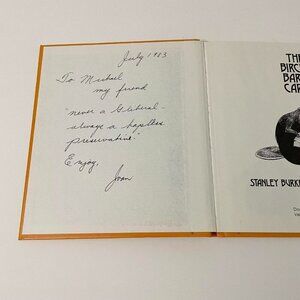 July 1983
To Michael
my friend
"never a liberal -
always a hapless
preservative."
Enjoy,
Joan
THE
BIRC
BAR
CAR
STANLEY BURK